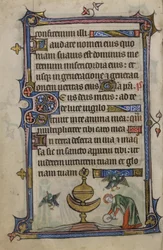 confitemini illi
Laudate nomen eius quo
niam suavis est dominus in e
ternum misericordia eius: et
usq; in generatione & generatio
nem veritas eius
Deus deus meus: ad te
de luce vigilo
Sitivit in te anima mea: qua
multipliciter tibi caro mea
In terra deserta in via & inaq
sic in sancto apparui tibi: ut
viderem virtutem tuam et glo
riam tuam